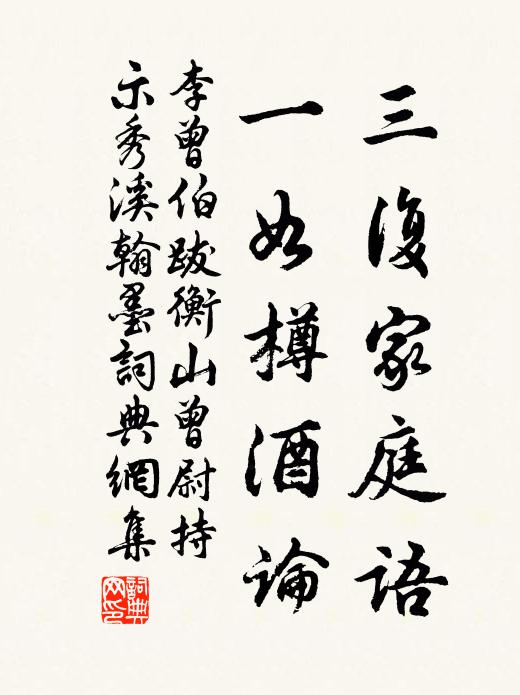 三復家庭語
一如樽酒論
李曾伯跋衡山曾尉持
示秀溪翰墨詞典網集
詞典
网印